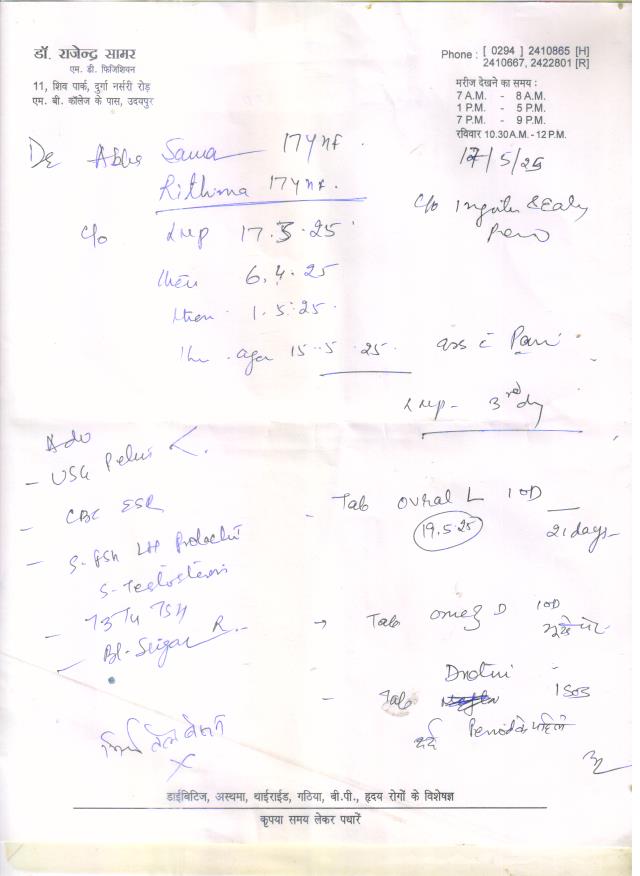 डॉ. राजेन्द्र सामर
एम. डी. फिजिशियन
11, शिव पार्क, दुर्गा नर्सरी रोड़
एम. बी. कॉलेज के पास, उदयपुर
Phone : [ 0294 ] 2410865 [H]
2410667, 2422801 [R]
मरीज देखने का समय :
7 A.M. - 8 A.M.
1 P.M. - 5 P.M.
7 P.M. - 9 P.M.
रविवार 10.30 A.M. - 12 P.M.
17/5/25
17y nf.
Rithima 17y nf.
c/o
c/o LMP 17.3.25
then 6.4.25
then 1.5.25
15.5.25
LMP - 3rd dy
Adv
- USG Pelvis
- CBC ESR
- S-FSH LH Prolactin
S-Testosterone
- T3 T4 TSH
- Bl-Sugar R.
- Tab Ovral L 1OD
19.5.25
21 days
→ Tab Omez D 1OD
- Tab Drotin 1 SOS
दर्द Period के पहिले
डाईबिटिज, अस्थमा, थाईराईड, गठिया, बी.पी., हृदय रोगों के विशेषज्ञ
कृपया समय लेकर पधारें